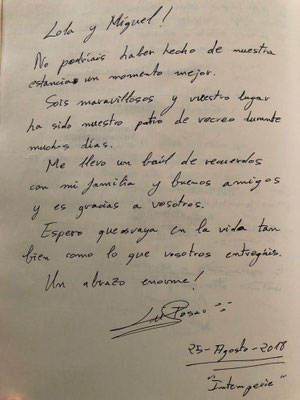 Lola y Miguel!
No podríais haber hecho de nuestra
estancia un momento mejor.
Sois maravillosos y vuestro lugar
ha sido nuestro patio de recreo durante
muchos días.
Me llevo un baúl de recuerdos
con mi familia y buenos amigos
y es gracias a vosotros.
Espero que os vaya en la vida tan
bien como lo que vosotros entregáis.
Un abrazo enorme!
25-Agosto-2018
"Intemperie"